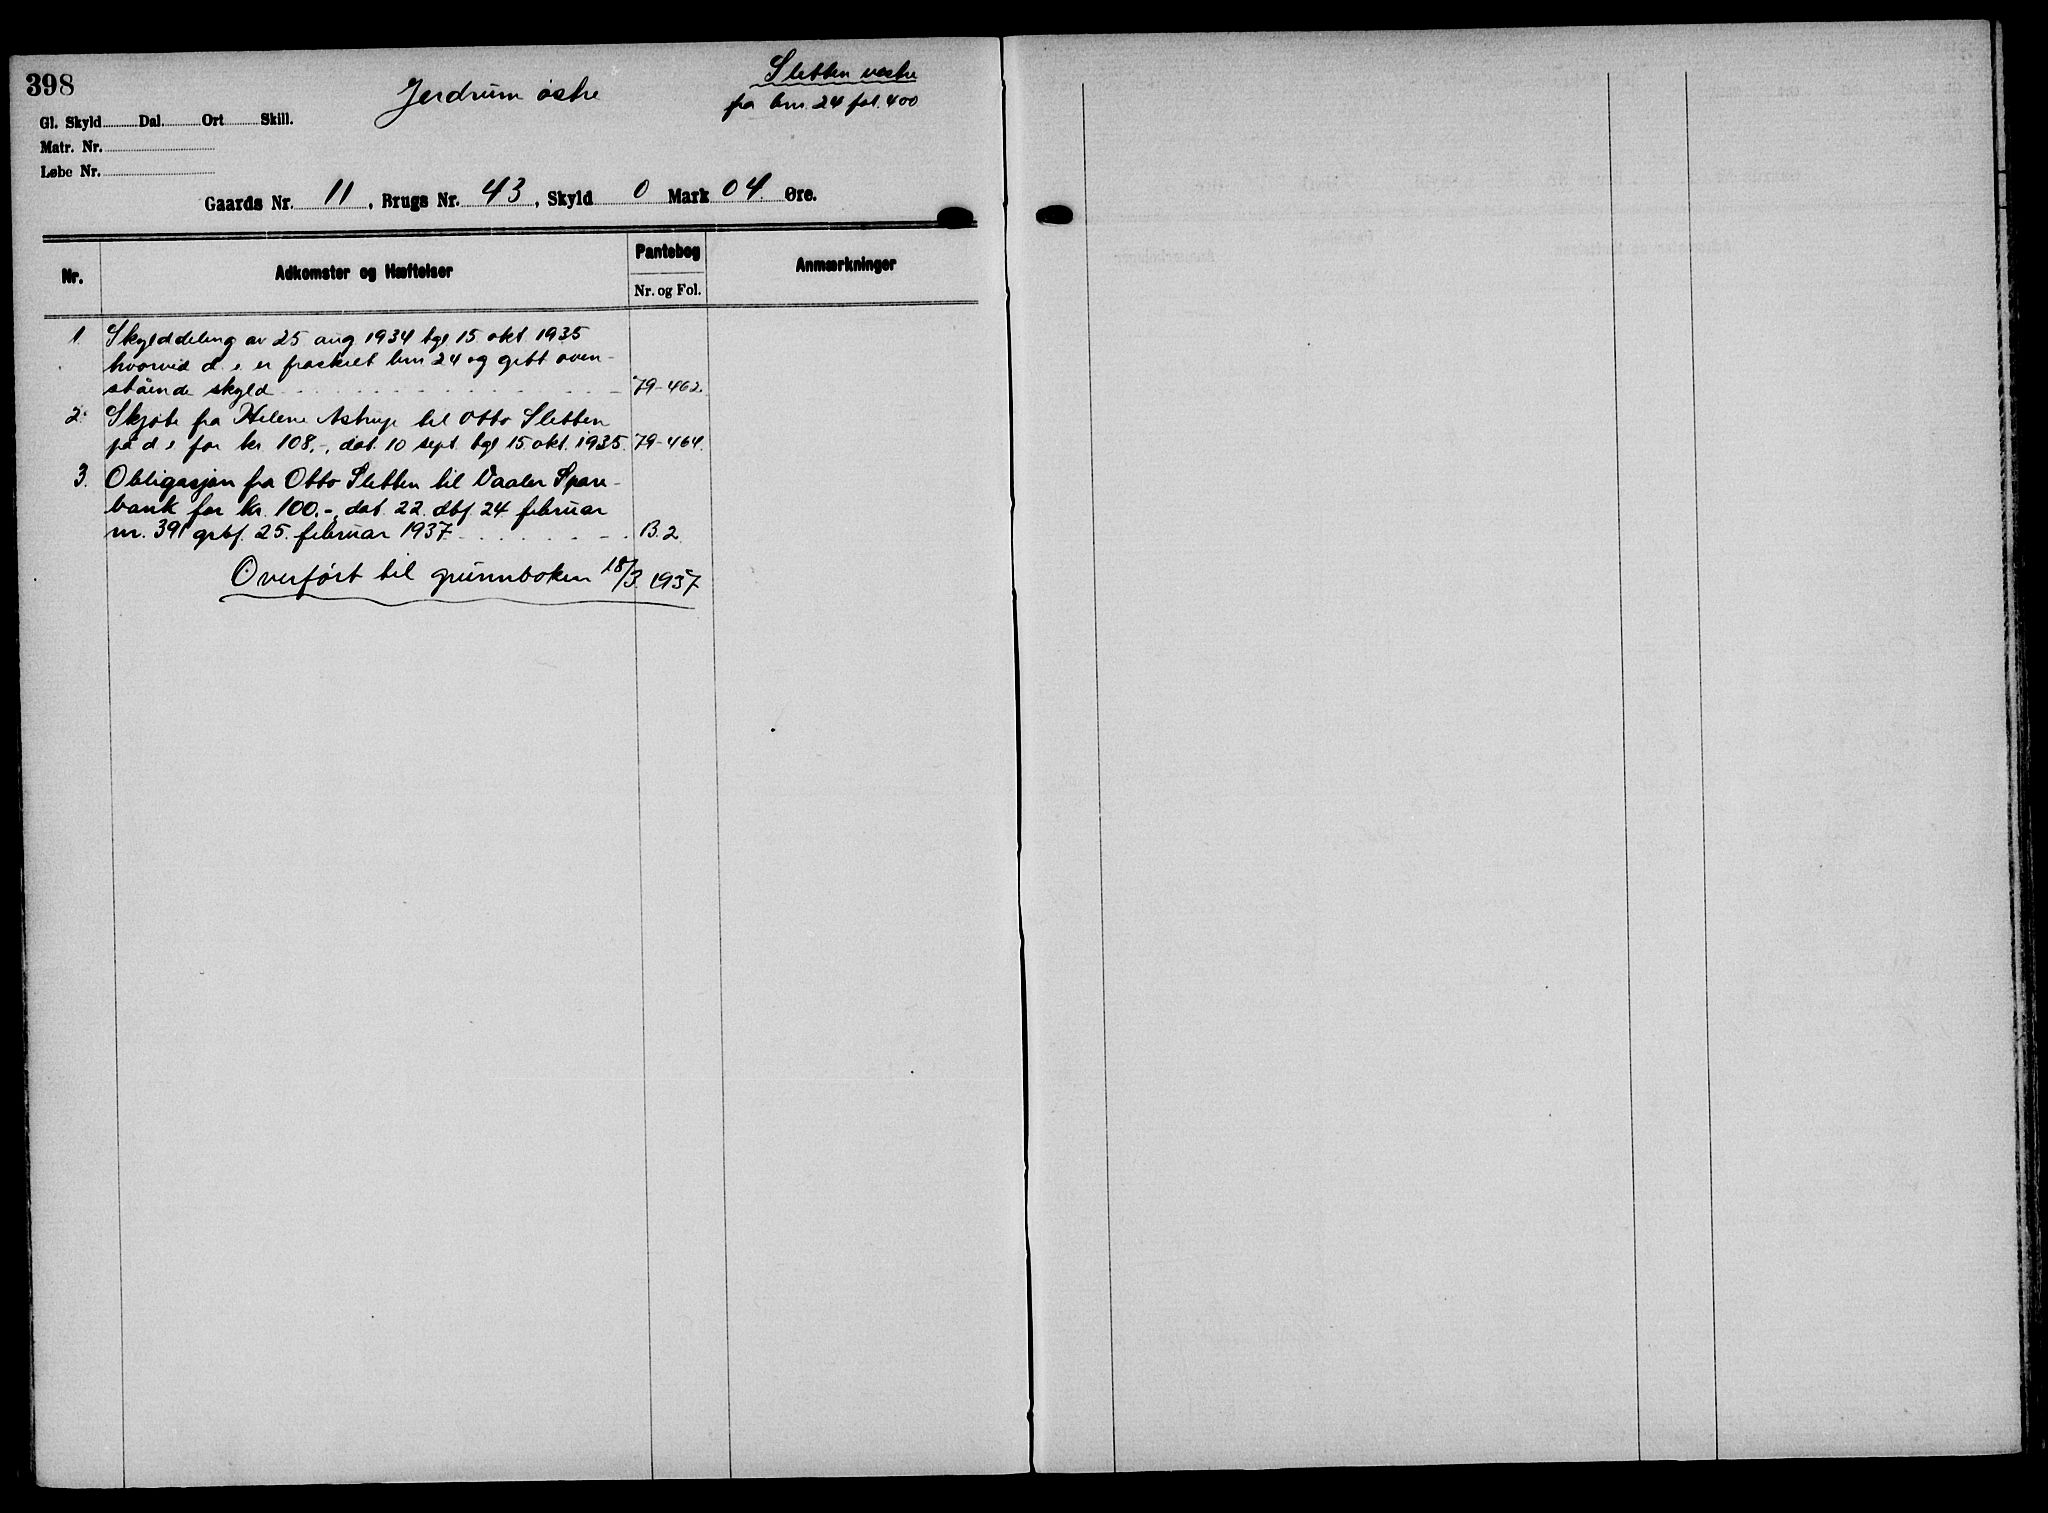 398
Jerdrum östre
Sletten vestre
fra bnr. 24 fol. 400
Gl. Skyld Dal. Ort Skill.
Matr. Nr.
Løbe Nr.
Gaards Nr. 11, Brugs Nr. 43, Skyld 0 Mark 04. Øre.
Nr. Adkomster og Hæftelser Pantebog Anmærkninger
Nr. og Fol.
1. Skylddeling av 25 aug 1934 tgl. 15. okt 1935
hvorved d. e. er fraskret bnr 24 og gitt oven-
stående skyld 79-462.
2. Skjøte fra Helene Astrup til Otto Sletten
på d. e. for kr. 108.-, dat. 10 sept. tgl 15. okt. 1935. 79-464.
3. Obligasjon fra Otto Sletten til Vaaler Spare-
bank for kr. 100.-, dat. 22. dbf. 24 februar
nr. 391 grbf. 25. februar 1937 B. 2.
Overfört til grunnboken 18/3. 1937